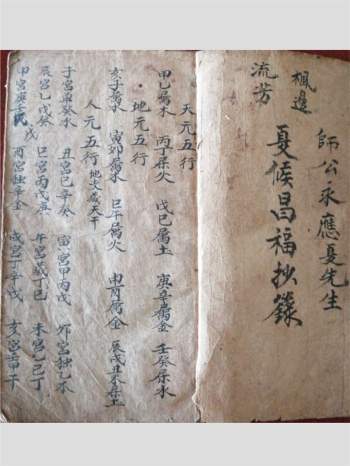 師公永應夏先生
楓邊
夏候昌福抄錄
流芳
天元五行
甲乙属木 丙丁属火 戊己属土 庚辛属金 壬癸属水
地元五行
亥子属水 寅卯属木 巳午属火 申酉属金 辰戌丑未属土
人元五行 地支藏天干
子宮单癸水 丑宮己辛癸 寅宮甲丙戊 卯宮独乙木
辰宮乙戊癸 巳宮丙戊庚 午宮藏丁己 未宮乙己丁
申宮庚壬戊 酉宮独辛金 戌宮丁辛戊 亥宮壬甲干